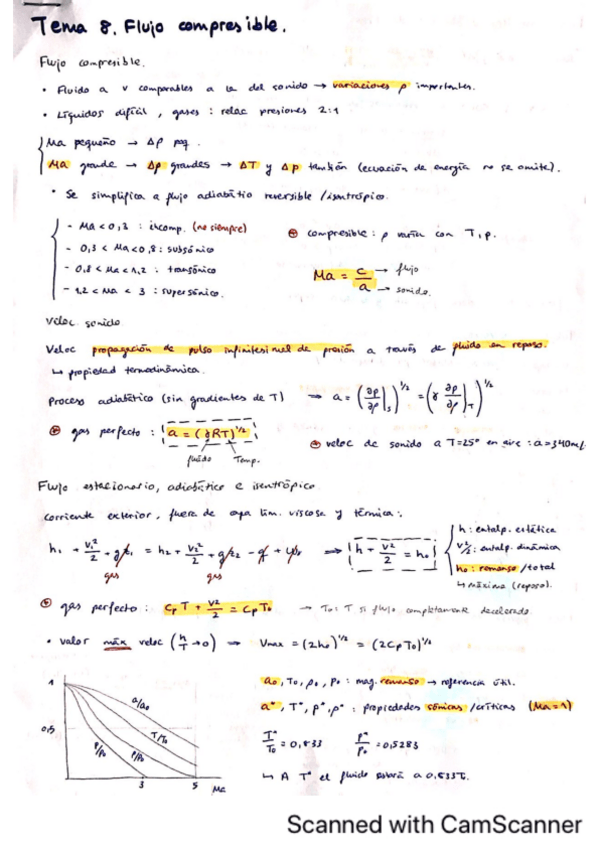 Tema 8. Flujo compresible.
Flujo compresible.
• Fluido a v comparables a la del sonido → variaciones ρ importantes.
• Líquidos difícil, gases: relac presiones 2:1
Ma pequeño → Δρ peq.
Ma grande → Δρ grandes → ΔT y Δp también (ecuación de energía no se omite).
• Se simplifica a flujo adiabático reversible / isentrópico.
- Ma < 0,3 : incomp. (no siempre)
⊕ compresible: ρ varía con T, p.
- 0,3 < Ma < 0,8 : subsónico
- 0,8 < Ma < 1,2 : transónico
Ma = c/a → flujo
→ sonido.
- 1,2 < Ma < 3 : supersónico.
Veloc. sonido
Veloc propagación de pulso infinitesimal de presión a través de fluido en reposo.
↳ propiedad termodinámica.
Proceso adiabático (sin gradientes de T) → a = (∂p/∂ρ|s)^1/2 = (γ ∂p/∂ρ|T)^1/2
⊕ gas perfecto: a = (γRT)^1/2
⊕ veloc de sonido a T=25º en aire: a=340m/s
fluido Temp.
Flujo estacionario, adiabático e isentrópico
Corriente exterior, fuera de capa lím. viscosa y térmica:
h₁ + v₁²/2 + gz₁ = h₂ + v₂²/2 + gz₂ - q + wᵥ ⇒ h + v²/2 = h₀
gas gas
h: entalp. estática
v²/2: entalp. dinámica
h₀: remanso/total
↳ máxima (reposo).
⊕ gas perfecto: CpT + v²/2 = CpT₀ → T₀: T si flujo completamente decelerado.
• valor máx veloc (h/T → 0) ⇒ Vmax = (2h₀)^1/2 = (2CpT₀)^1/2
a₀, T₀, p₀, ρ₀ : mag. remanso → referencia útil.
a*, T*, p*, ρ* : propiedades sónicas/críticas (Ma=1)
T*/T₀ = 0,833 p*/p₀ = 0,5283
↳ A T* el fluido estará a 0,833T₀.
1
0,5
a/a₀
T/T₀
ρ/ρ₀
p/p₀
3 5 Ma
Scanned with CamScanner